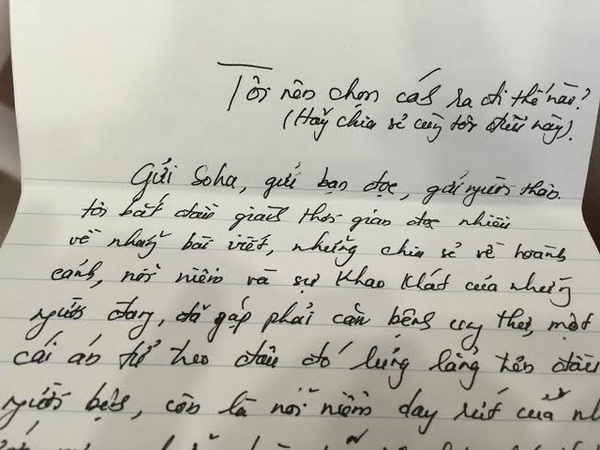 Tôi nên chọn cách ra đi thế nào?
(Hãy chia sẻ cùng tôi điều này).
Gửi Soha, gửi bạn đọc, gửi người thân.
tôi bắt đầu giành thời gian đọc nhiều
về những bài viết, những chia sẻ về hoàn
cảnh, nỗi niềm và sự khao khát của những
người đang, đã gặp phải căn bệnh ung thư, một
cái án tử treo đâu đó lửng lẳng trên đầu
người bệnh, còn là nỗi niềm day rứt của nh